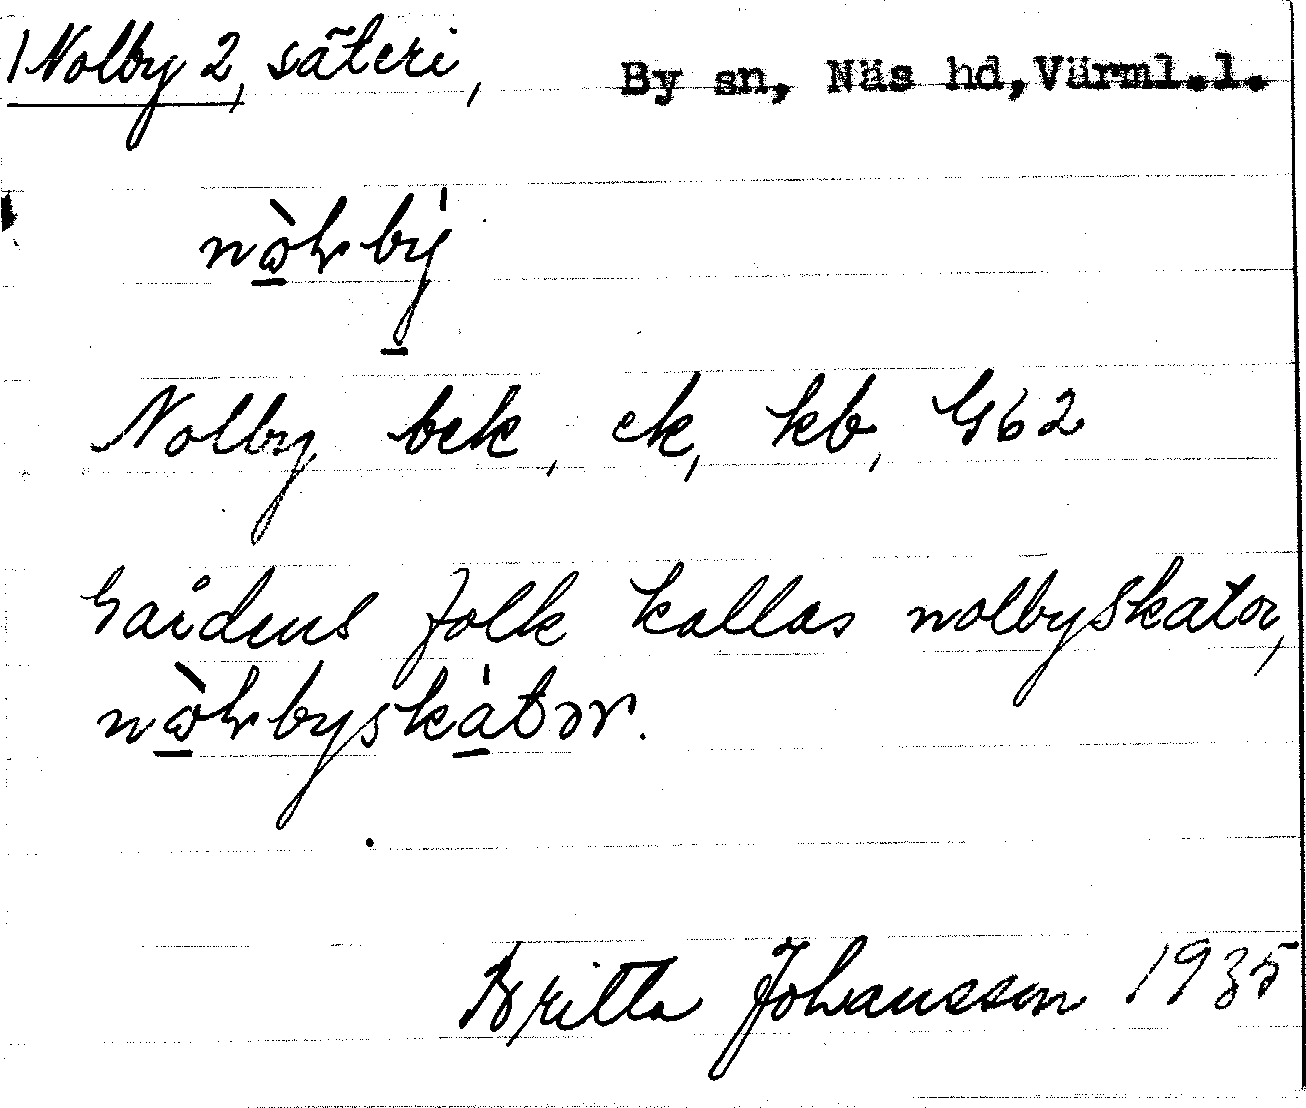 1 Nolby 2, säteri, By sn, Näs hd, Värml.l.
Nolby bek, ek, kb, G62
Gårdens folk kallas nolbyskator,
Britta Johansson 1935